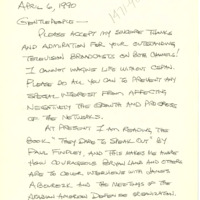 APRIL 6, 1990
GENTLEPEOPLE —
PLEASE ACCEPT MY SINCERE THANKS
AND ADMIRATION FOR YOUR OUTSTANDING
TELEVISION BROADCASTS ON BOTH CHANNELS!
I CANNOT IMAGINE LIFE WITHOUT CSPAN.
PLEASE DO ALL YOU CAN TO PREVENT ANY
SPECIAL INTEREST FROM AFFECTING
NEGATIVELY THE GROWTH AND PROGRESS
OF THE NETWORKS.
AT PRESENT I AM READING THE
BOOK "THEY DARE TO SPEAK OUT" BY
PAUL FINDLEY, AND THIS MAKES ME AWARE
HOW COURAGEOUS BRYAN LAMB AND OTHERS
ARE TO COVER INTERVIEWS WITH JAMES
ABOUREZK AND THE MEETINGS OF THE
ARABIAN AMERICAN DEFENSE ORGANIZATION.